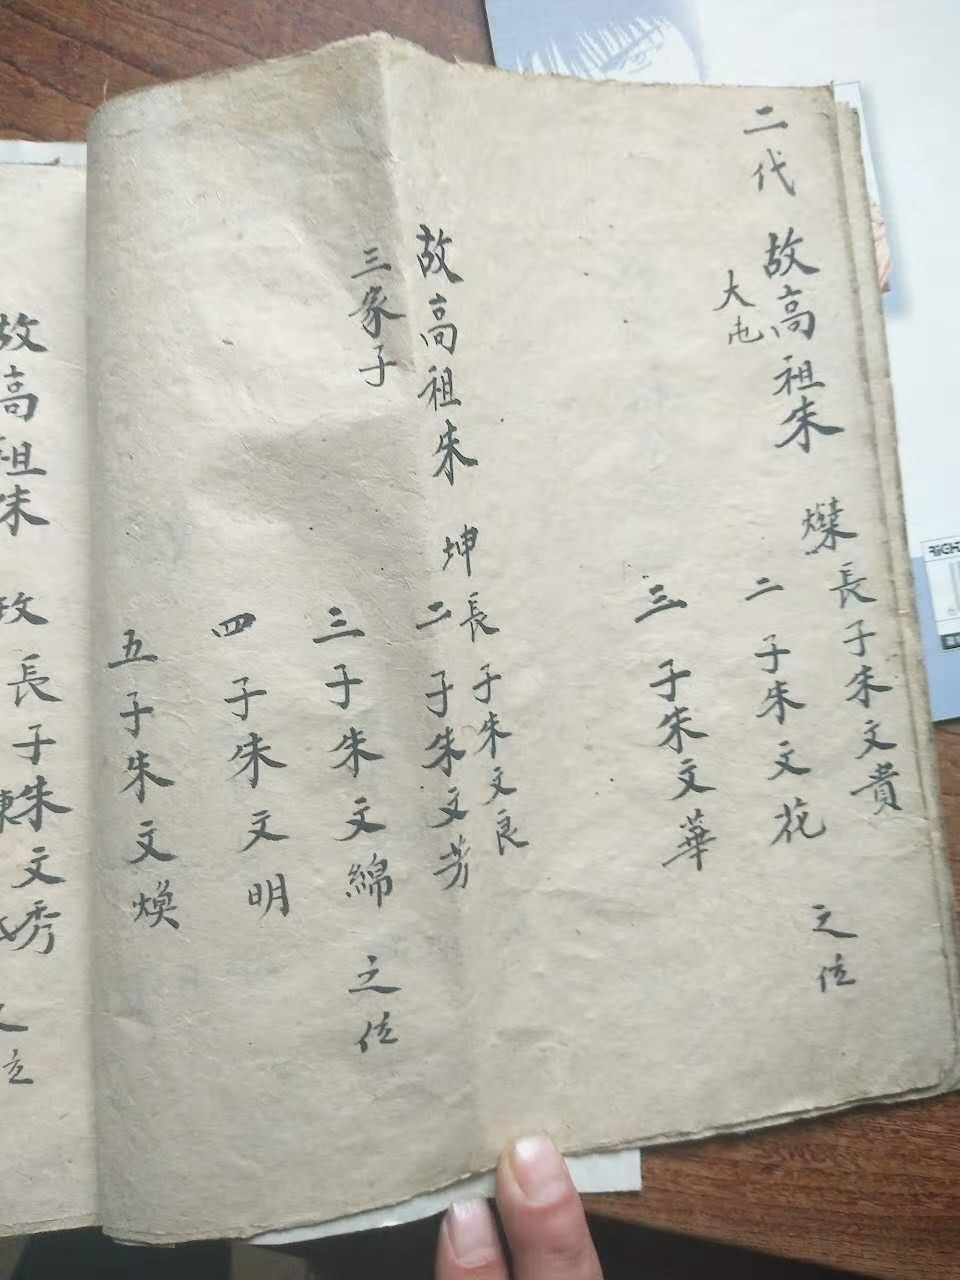 二代
故高祖朱
大屯
燦長子朱文貴
二子朱文花
三子朱文華
之位
故高祖朱坤長子朱文良
三家子
二子朱文芳
三子朱文綿
四子朱文明
五子朱文煥
之位
故高祖朱玫長子朱文秀
RiGHT